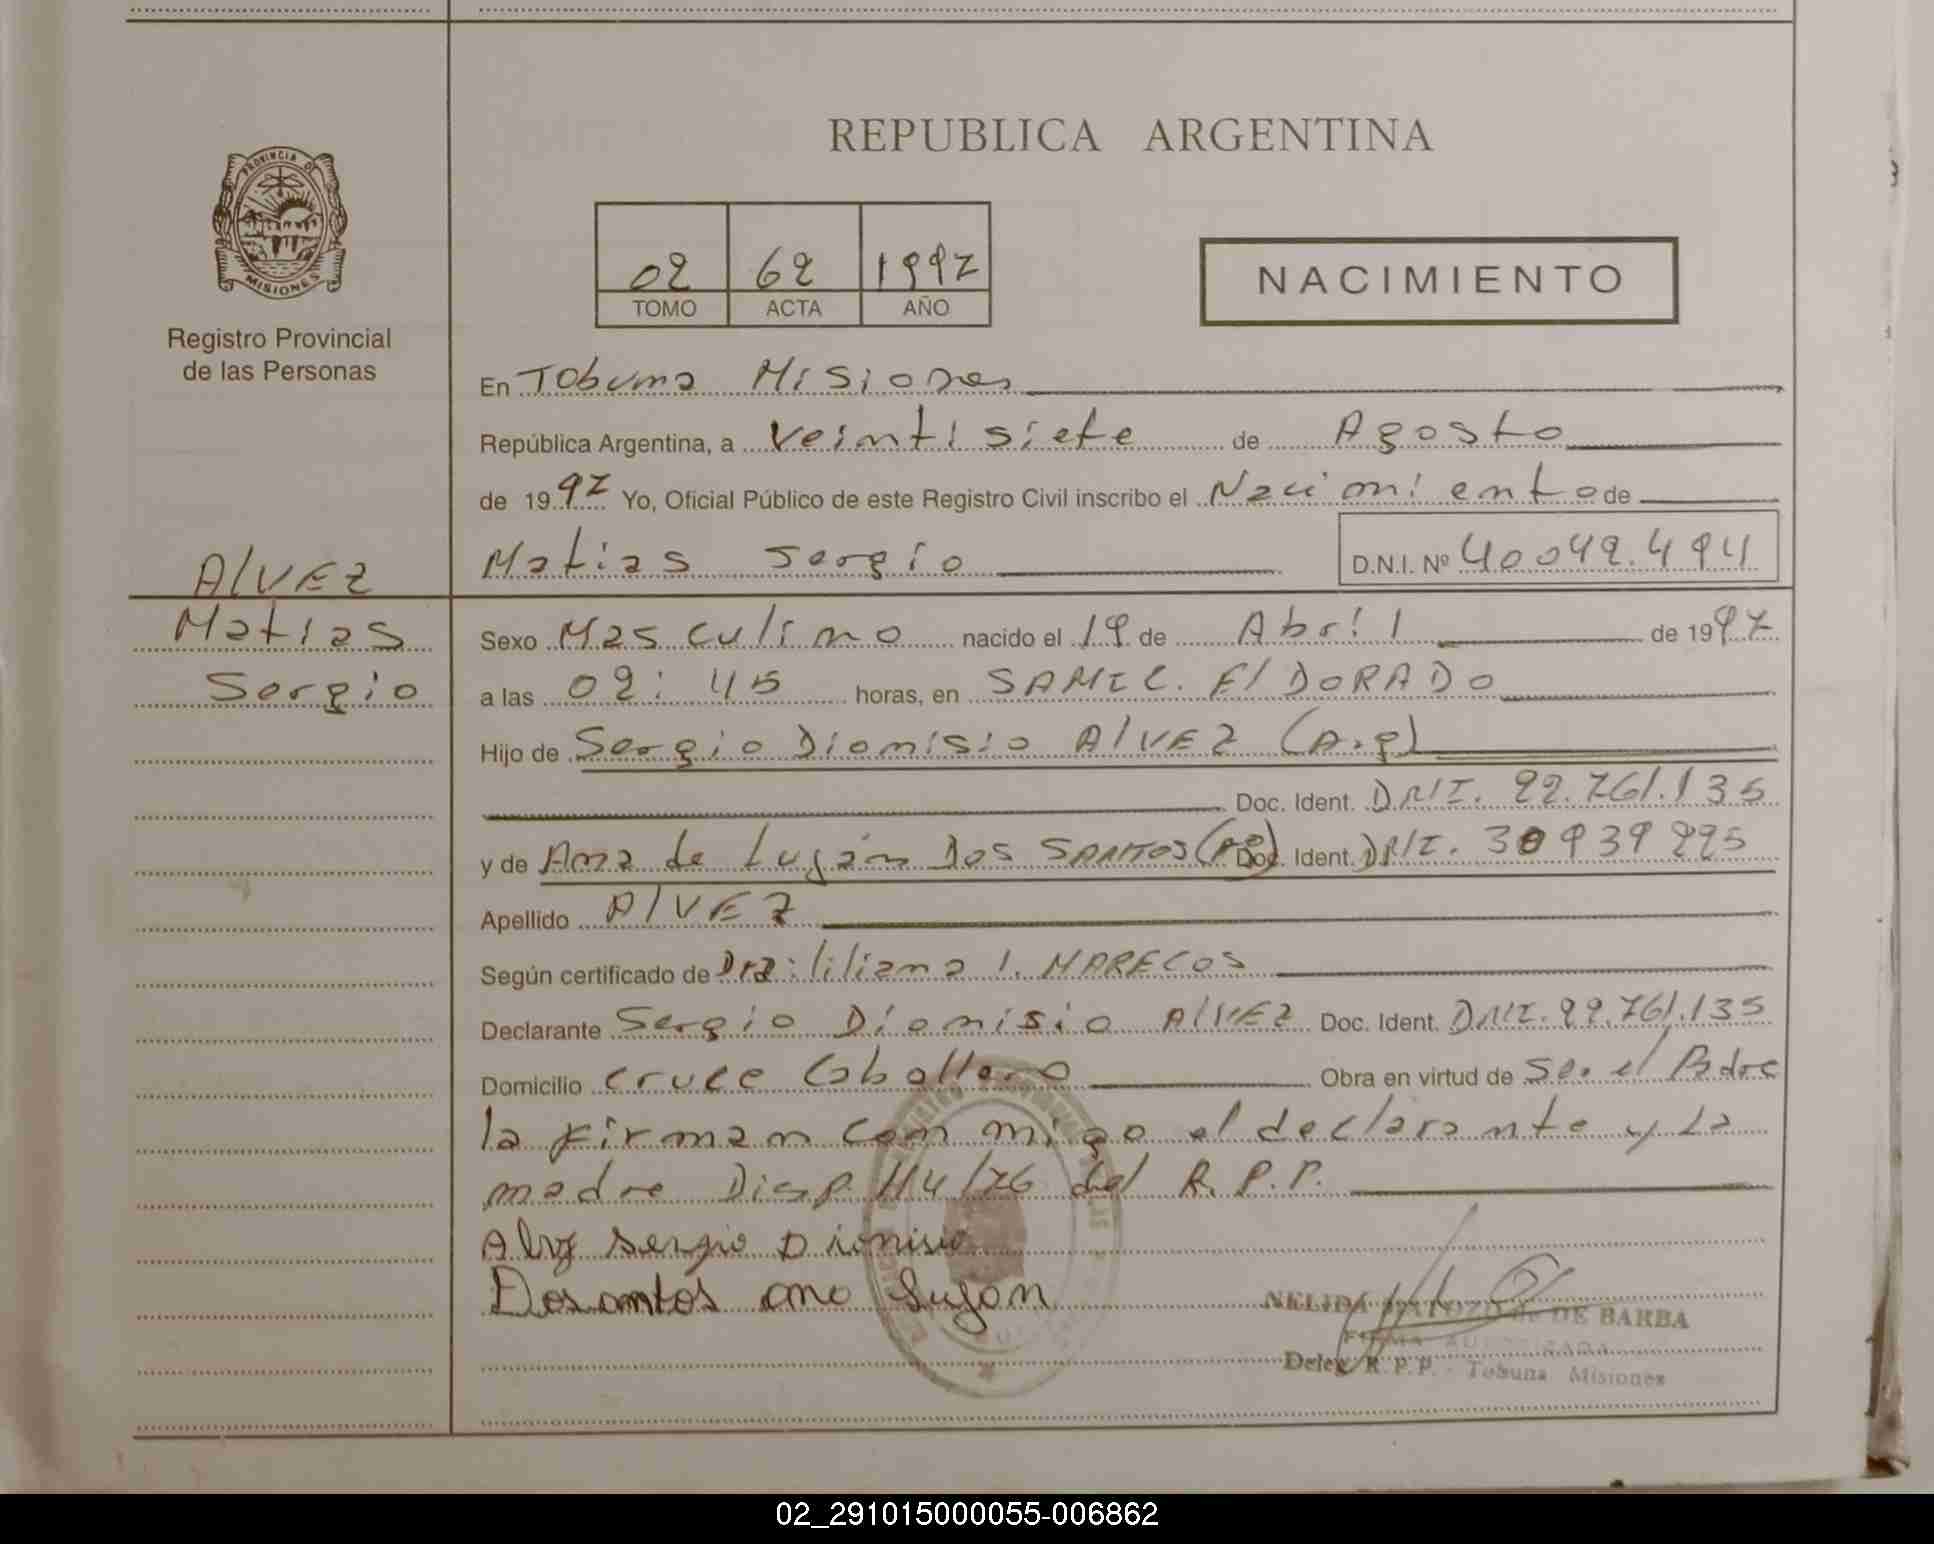 REPUBLICA ARGENTINA
PROVINCIA D
MISIONES
Registro Provincial
de las Personas
02 62 1997
TOMO ACTA AÑO
NACIMIENTO
En Tobuna Misiones
República Argentina, a Veintisiete de Agosto
de 1997 Yo, Oficial Público de este Registro Civil inscribo el Nacimiento de
Matias Sergio D.N.I. Nº 40042.494
AlVEZ
Matias
Sergio
Sexo Masculino nacido el 19 de Abril de 1997
a las 02:45 horas, en SAMIC. ElDORADO
Hijo de Sergio Dionisio AlVEZ (Arg)
Doc. Ident. DNI. 22.761.135
y de Ana de Luján Dos SANTOS Doc. Ident. DNI. 30939225
Apellido AlVEZ
Según certificado de Dra: liliana I. MARECOS
Declarante Sergio Dionisio AlVEZ Doc. Ident. DNI. 22.761.135
Domicilio cruce Caballero Obra en virtud de Ser el Padre
la firman con migo el declarante y La
madre Disp. 114/76 del R.P.P.
Alvz Sergio Dionisio
Dosantos ana Lujan
NELIDA DE BARBA
Deleg. R.P.P. - Tobuna Misiones
02_291015000055-006862